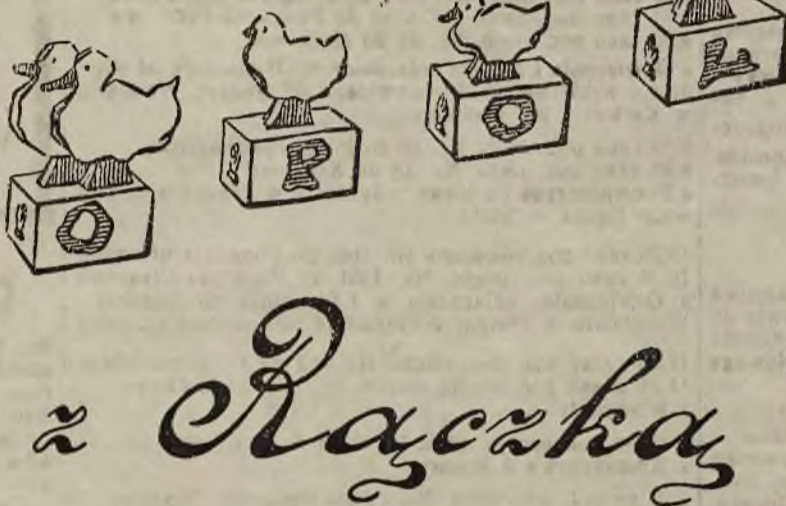 O P O L
z Rączką